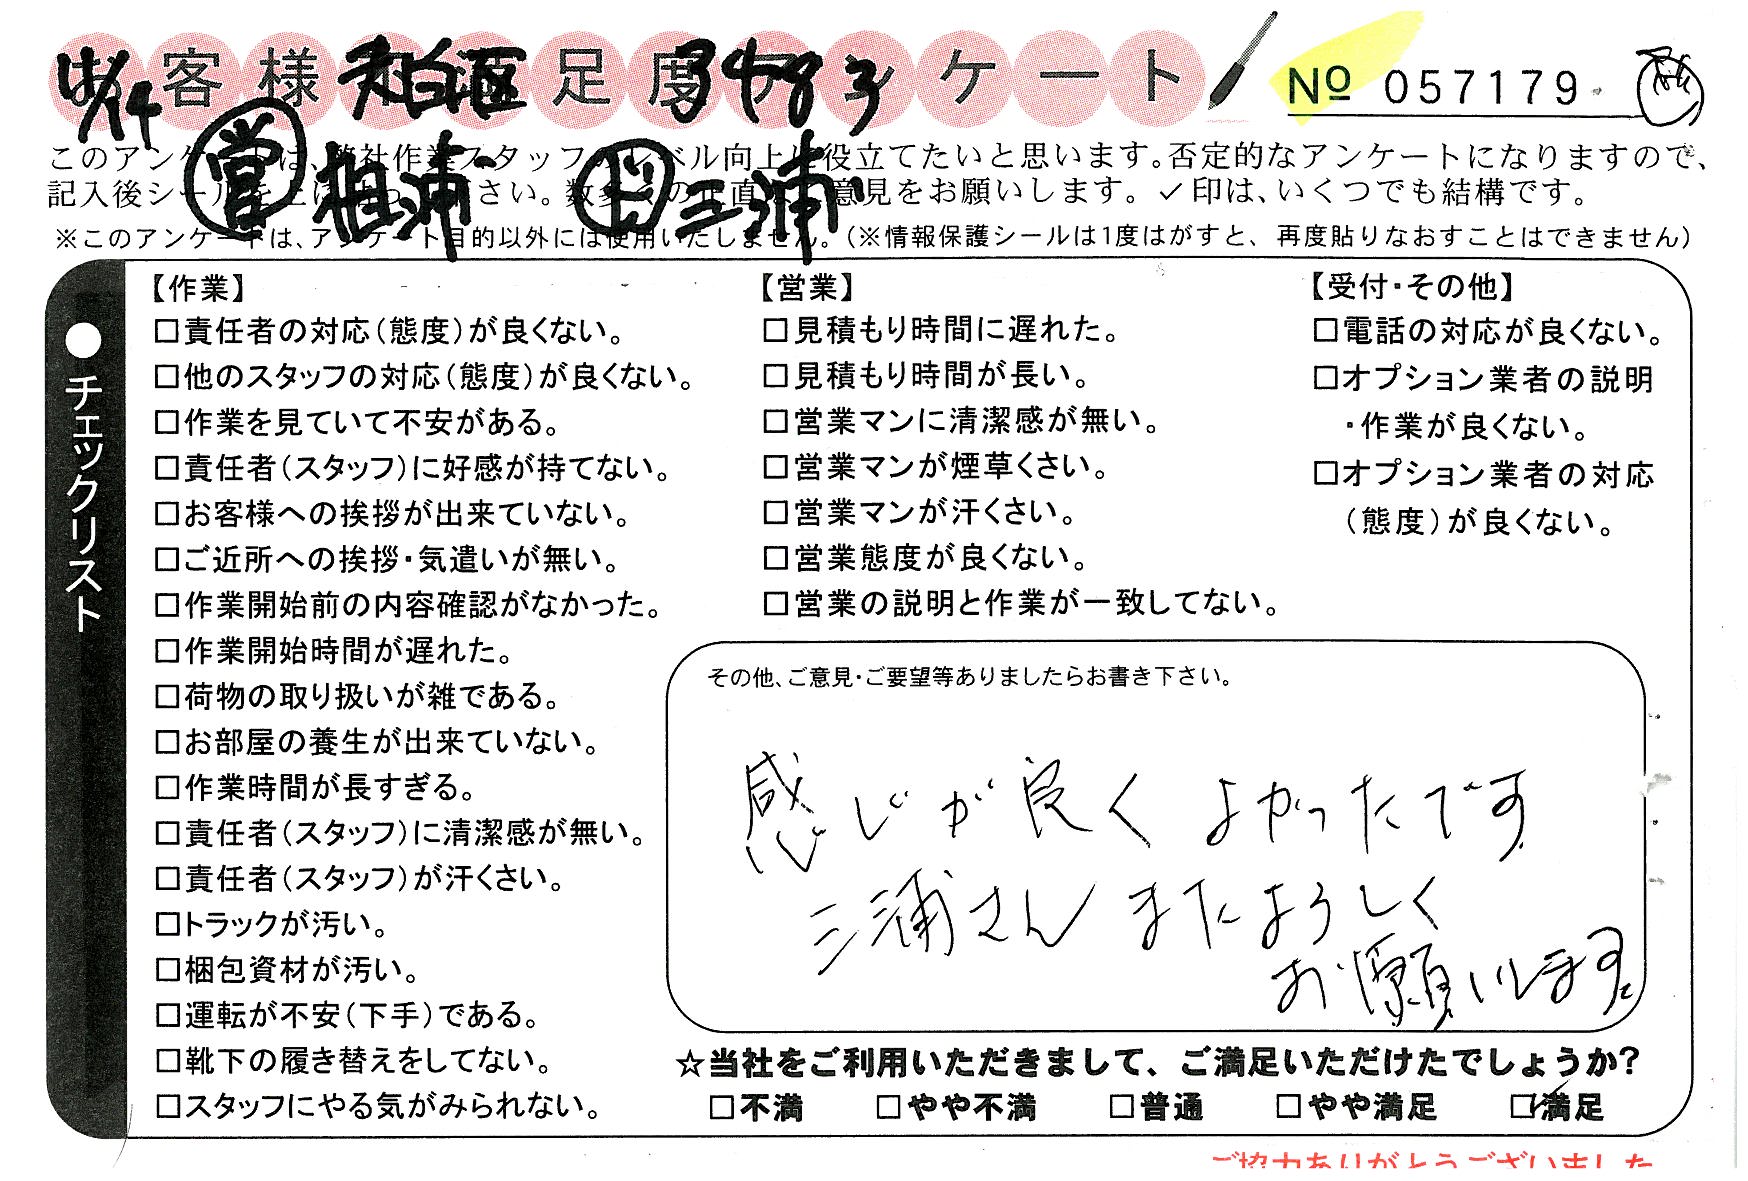 お客様不満足度アンケート
11/14 天白区 3483
No 057179
営 相浦 ド 三浦
このアンケートは、弊社作業スタッフのレベル向上に役立てたいと思います。否定的なアンケートになりますので、
記入後シールを上にはって下さい。数多くの正直なご意見をお願いします。✓印は、いくつでも結構です。
※このアンケートは、アンケート目的以外には使用いたしません。(※情報保護シールは1度はがすと、再度貼りなおすことはできません)
●チェックリスト
【作業】
□責任者の対応(態度)が良くない。
□他のスタッフの対応(態度)が良くない。
□作業を見ていて不安がある。
□責任者(スタッフ)に好感が持てない。
□お客様への挨拶が出来ていない。
□ご近所への挨拶・気遣いが無い。
□作業開始前の内容確認がなかった。
□作業開始時間が遅れた。
□荷物の取り扱いが雑である。
□お部屋の養生が出来ていない。
□作業時間が長すぎる。
□責任者(スタッフ)に清潔感が無い。
□責任者(スタッフ)が汗くさい。
□トラックが汚い。
□梱包資材が汚い。
□運転が不安(下手)である。
□靴下の履き替えをしてない。
□スタッフにやる気がみられない。
【営業】
□見積もり時間に遅れた。
□見積もり時間が長い。
□営業マンに清潔感が無い。
□営業マンが煙草くさい。
□営業マンが汗くさい。
□営業態度が良くない。
□営業の説明と作業が一致してない。
【受付・その他】
□電話の対応が良くない。
□オプション業者の説明
・作業が良くない。
□オプション業者の対応
(態度)が良くない。
その他、ご意見・ご要望等ありましたらお書き下さい。
感じが良く よかったです
三浦さん またよろしく
お願いします。
☆当社をご利用いただきまして、ご満足いただけたでしょうか?
□不満 □やや不満 □普通 □やや満足 ☑満足
ご協力ありがとうございました